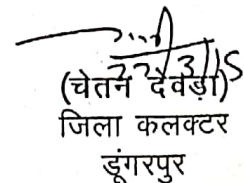 (चेतन देवड़ा)
जिला कलक्टर
डूंगरपुर